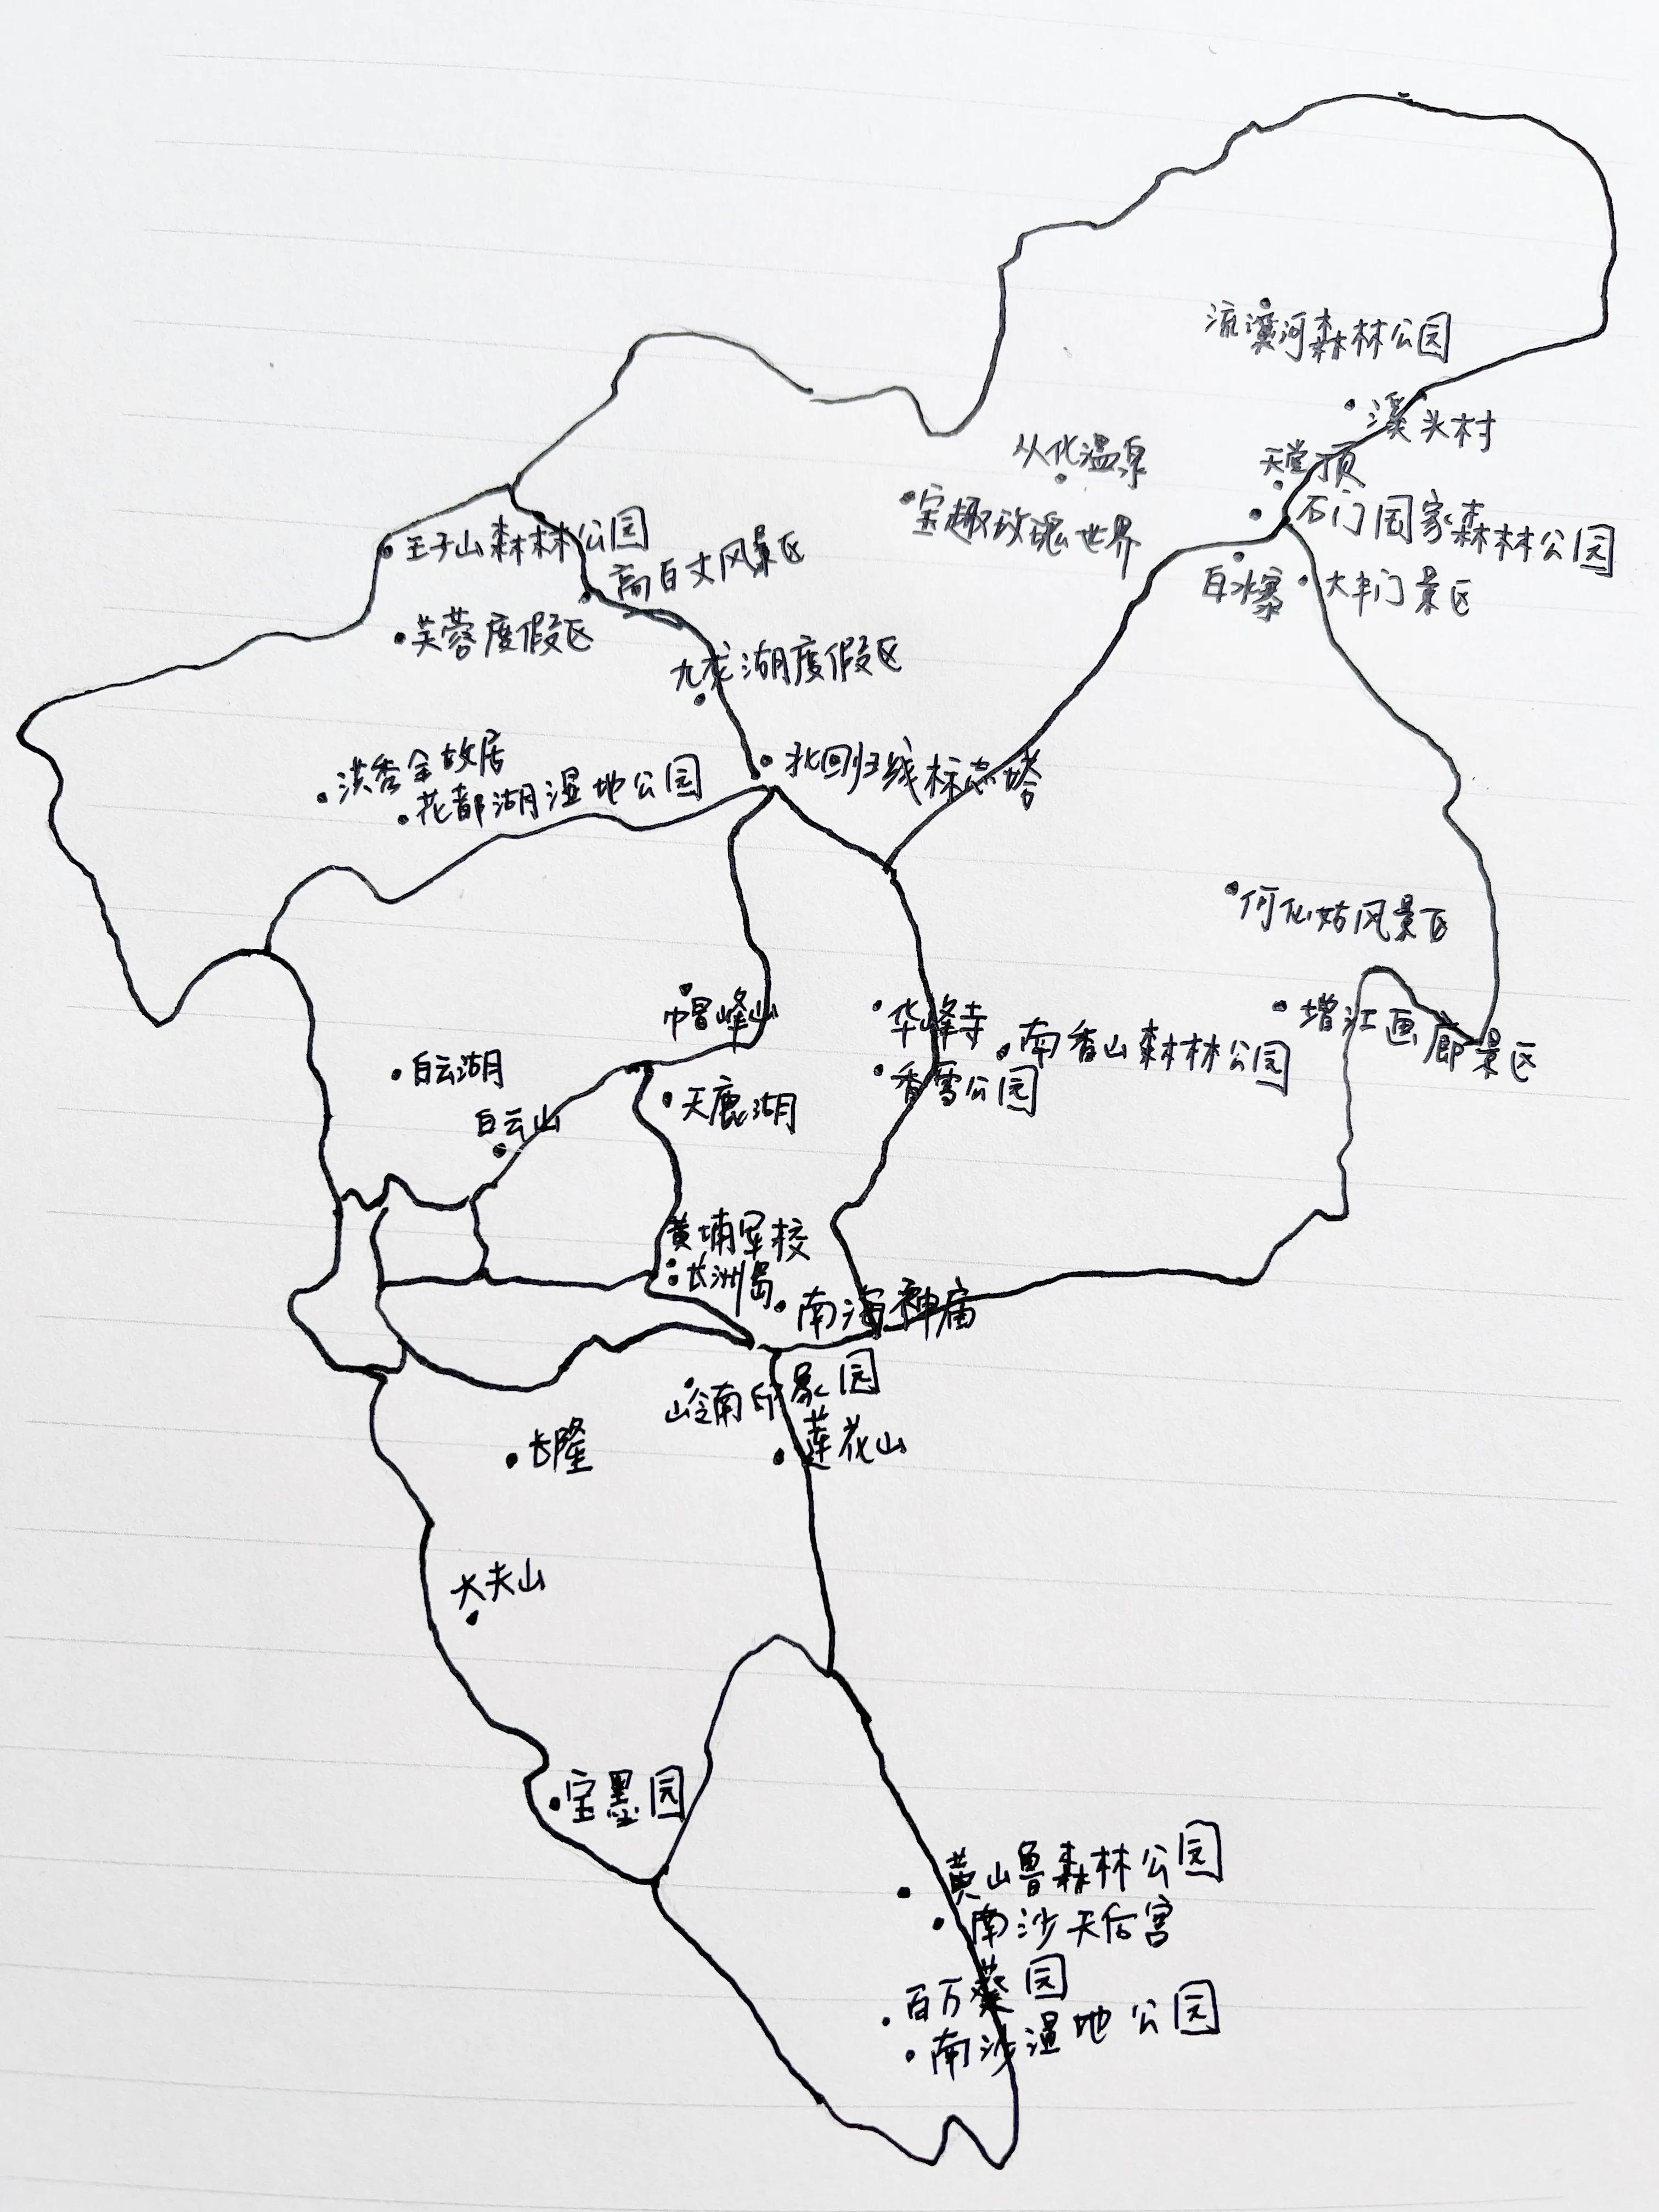 流溪河森林公园
溪头村
天堂顶
从化温泉
宝趣玫瑰世界
石门国家森林公园
王子山森林公园
高百丈风景区
白水寨
大丰门景区
芙蓉度假区
九龙湖度假区
洪秀全故居
北回归线标志塔
花都湖湿地公园
何仙姑风景区
帽峰山
华峰寺
南香山森林公园
增江画廊景区
白云湖
天鹿湖
香雪公园
白云山
黄埔军校
长洲岛
南海神庙
岭南印象园
莲花山
长隆
大夫山
宝墨园
黄山鲁森林公园
南沙天后宫
百万葵园
南沙湿地公园